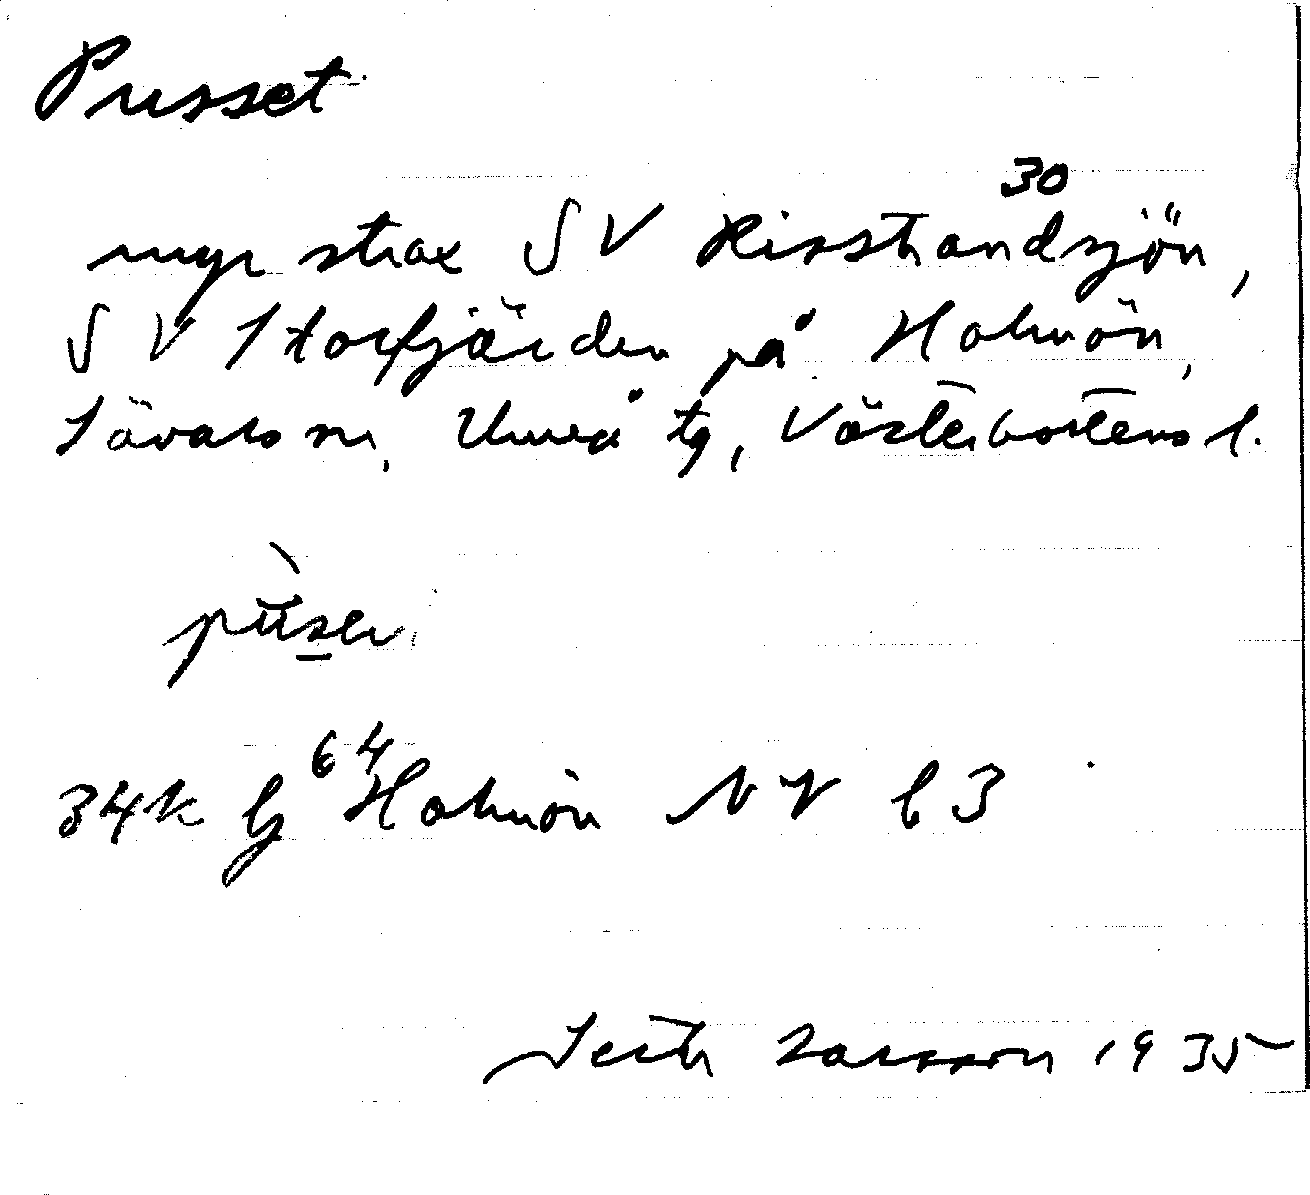 Pusset
30
myr strax SV Risstrandsjön,
SV Storfjärden på Holmön,
Sävars sn, Umeå tg, Västerbottens l.
64
34k bj Holmön NV b 3
Larsson 1935